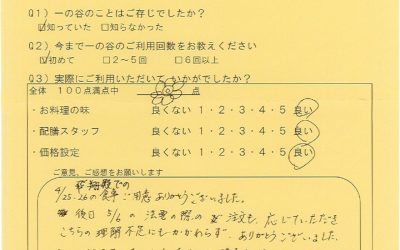 Q1）一の谷のことはご存じでしたか？
☑知っていた □知らなかった
Q2）今まで一の谷のご利用回数をお教えください
☑初めて □2～5回 □6回以上
Q3）実際にご利用いただいていかがでしたか？
全体 100点満点中 点
・お料理の味 良くない 1・2・3・4・5 良い
・配膳スタッフ 良くない 1・2・3・4・5 良い
・価格設定 良くない 1・2・3・4・5 良い
ご意見、ご感想をお願いします
での
4/25.26の食事ご用意ありがとうございました。
後日 5/6の法要の際のご注文も、応じていただき
こちらの理解不足にもかかわらず、ありがとうございました。